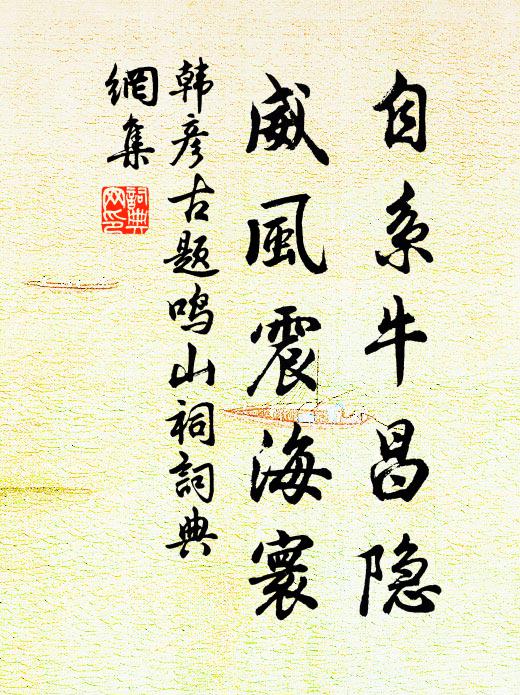 自系牛昌隐
威風震海寰
韩彦古题鸣山祠詞典
網集
詞典
网印